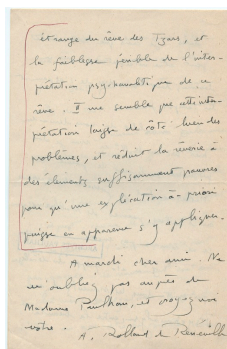 étrange du rêve des Tzars, et
la faiblesse pénible de l'inter-
prétation psychanalytique de ce
rêve. Il me semble que cette inter-
prétation laisse de côté bien des
problèmes, et réduit la rêverie à
des éléments suffisamment pauvres
pour qu'une explication à-priori
puisse en apparence s'y appliquer.
A mardi cher ami. Ne
m'oubliez pas auprès de
Madame Paulhan, et croyez moi
vôtre.
A. Rolland de Renéville